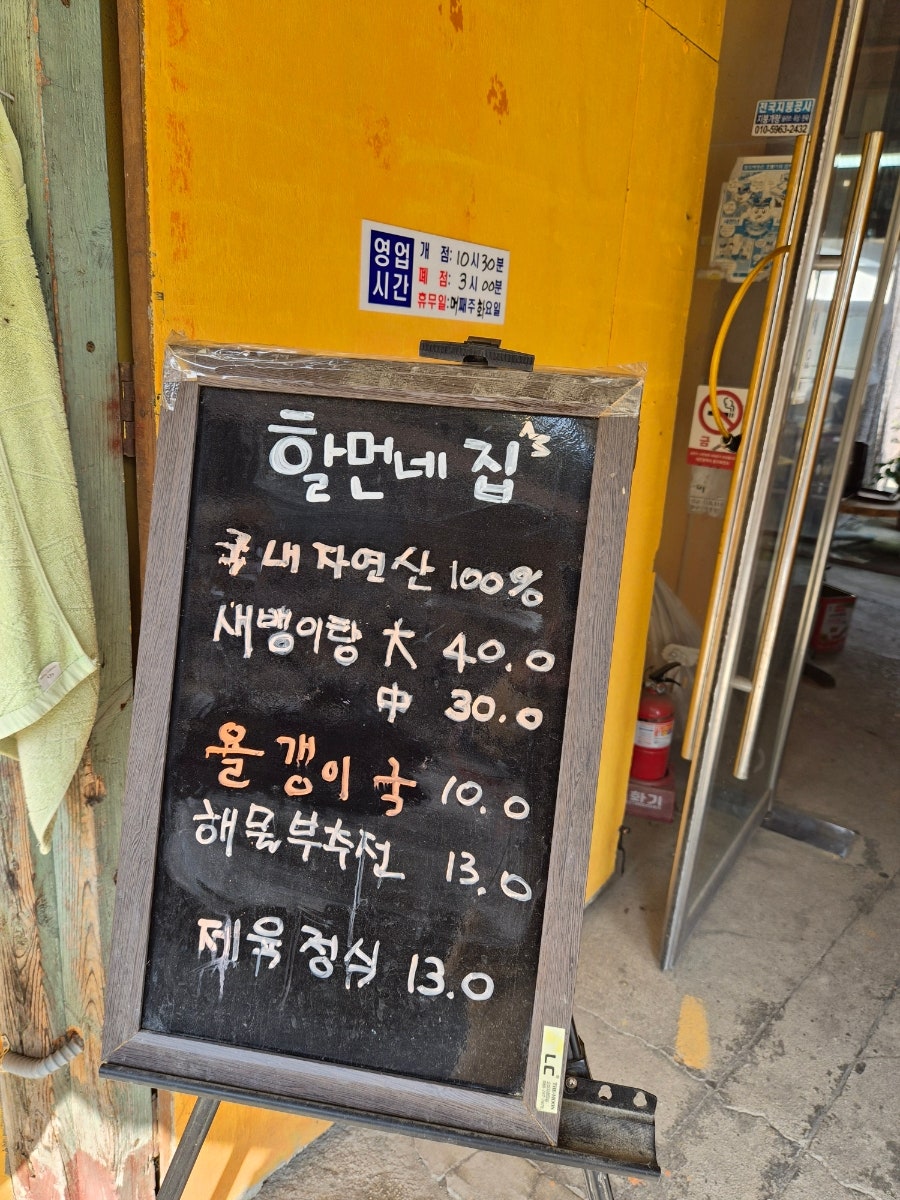 전국지붕공사
지붕개량
010-5963-2432
영업시간
개 점: 10시 30분
폐 점: 3시 00분
휴무일: 매째주 화요일
할먼네 집
국내 자연산 100%
새뱅이탕 大 40.0
中 30.0
올갱이국 10.0
해물부추전 13.0
제육정식 13.0
금
화기
LC